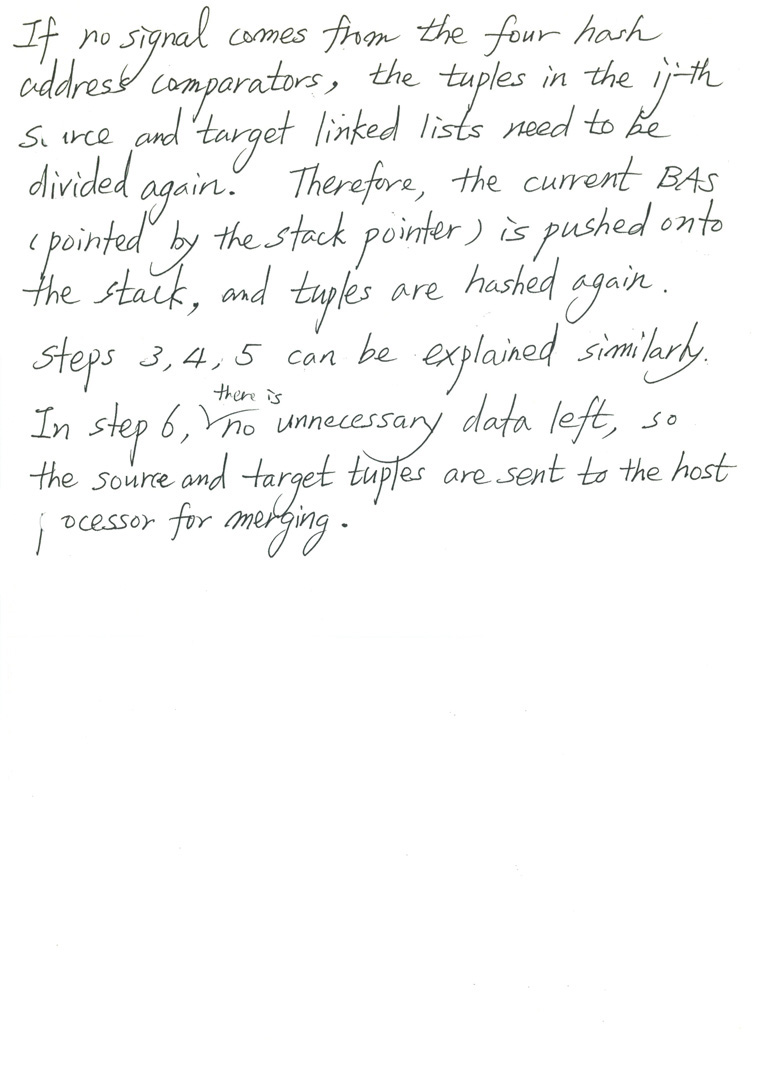 If no signal comes from the four hash
address comparators, the tuples in the ij-th
source and target linked lists need to be
divided again. Therefore, the current BAS
(pointed by the stack pointer) is pushed onto
the stack, and tuples are hashed again.
Steps 3, 4, 5 can be explained similarly.
In step 6, there is no unnecessary data left, so
the source and target tuples are sent to the host
processor for merging.